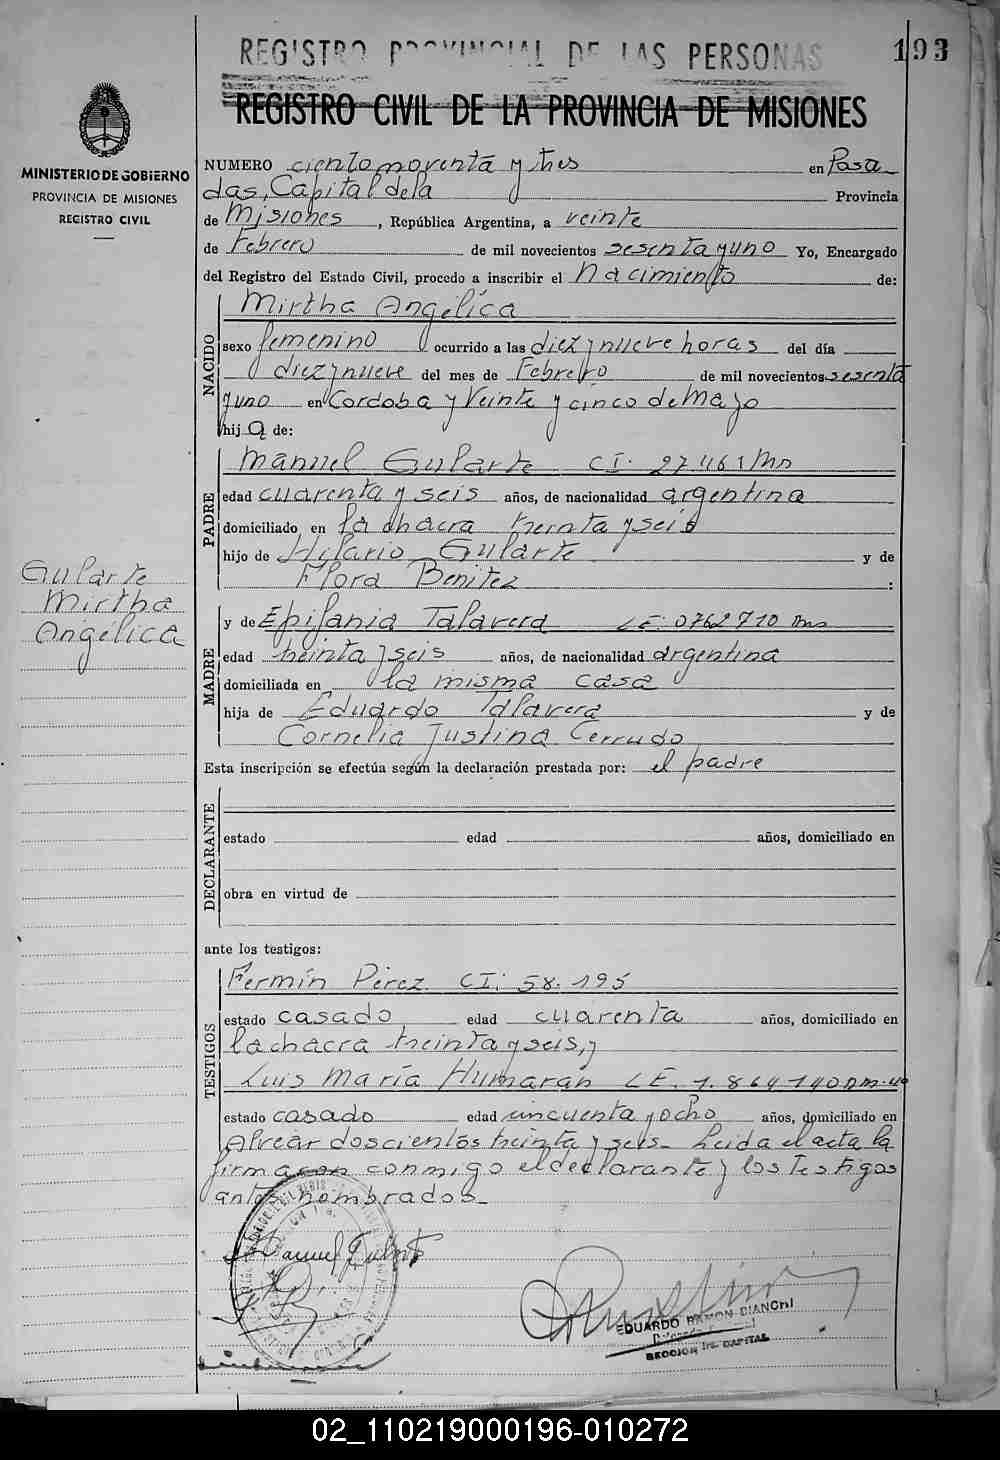 REGISTRO PROVINCIAL DE LAS PERSONAS
193
REGISTRO CIVIL DE LA PROVINCIA DE MISIONES
MINISTERIO DE GOBIERNO
PROVINCIA DE MISIONES
REGISTRO CIVIL
NUMERO ciento noventa y tres en Posa
das, Capital de la Provincia
de Misiones, República Argentina, a veinte
de Febrero de mil novecientos sesenta y uno Yo, Encargado
del Registro del Estado Civil, procedo a inscribir el Nacimiento de:
NACIDO
Mirtha Angélica
sexo femenino ocurrido a las diez y nueve horas del día
diez y nueve del mes de Febrero de mil novecientos sesenta
y uno en Cordoba y Veinte y cinco de Mayo
hij a de:
PADRE
Manuel Gularte CI. 27.461 Mn
edad cuarenta y seis años, de nacionalidad argentina
domiciliado en la chacra treinta y seis
hijo de Hilario Gularte y de
Flora Benitez :
Gularte
Mirtha
Angélica
MADRE
y de Epifania Talavera LE. 0762710 Mn
edad treinta y seis años, de nacionalidad argentina
domiciliada en la misma casa
hija de Eduardo Talavera y de
Cornelia Justina Cerrudo
Esta inscripción se efectúa según la declaración prestada por: el padre
DECLARANTE
estado edad años, domiciliado en
obra en virtud de
ante los testigos:
TESTIGOS
Fermín Pérez CI: 58.195
estado casado edad cuarenta años, domiciliado en
la chacra treinta y seis, y
Luis María Humaran LE. 1.864140
estado casado edad cincuenta y ocho años, domiciliado en
Alvear doscientos treinta y seis. Leida el acta la
firmaron conmigo el declarante y los testigos
antes nombrados.
Manuel Gularte
EDUARDO RAMON BIANCHI
SECCION 1ra. CAPITAL
02_110219000196-010272